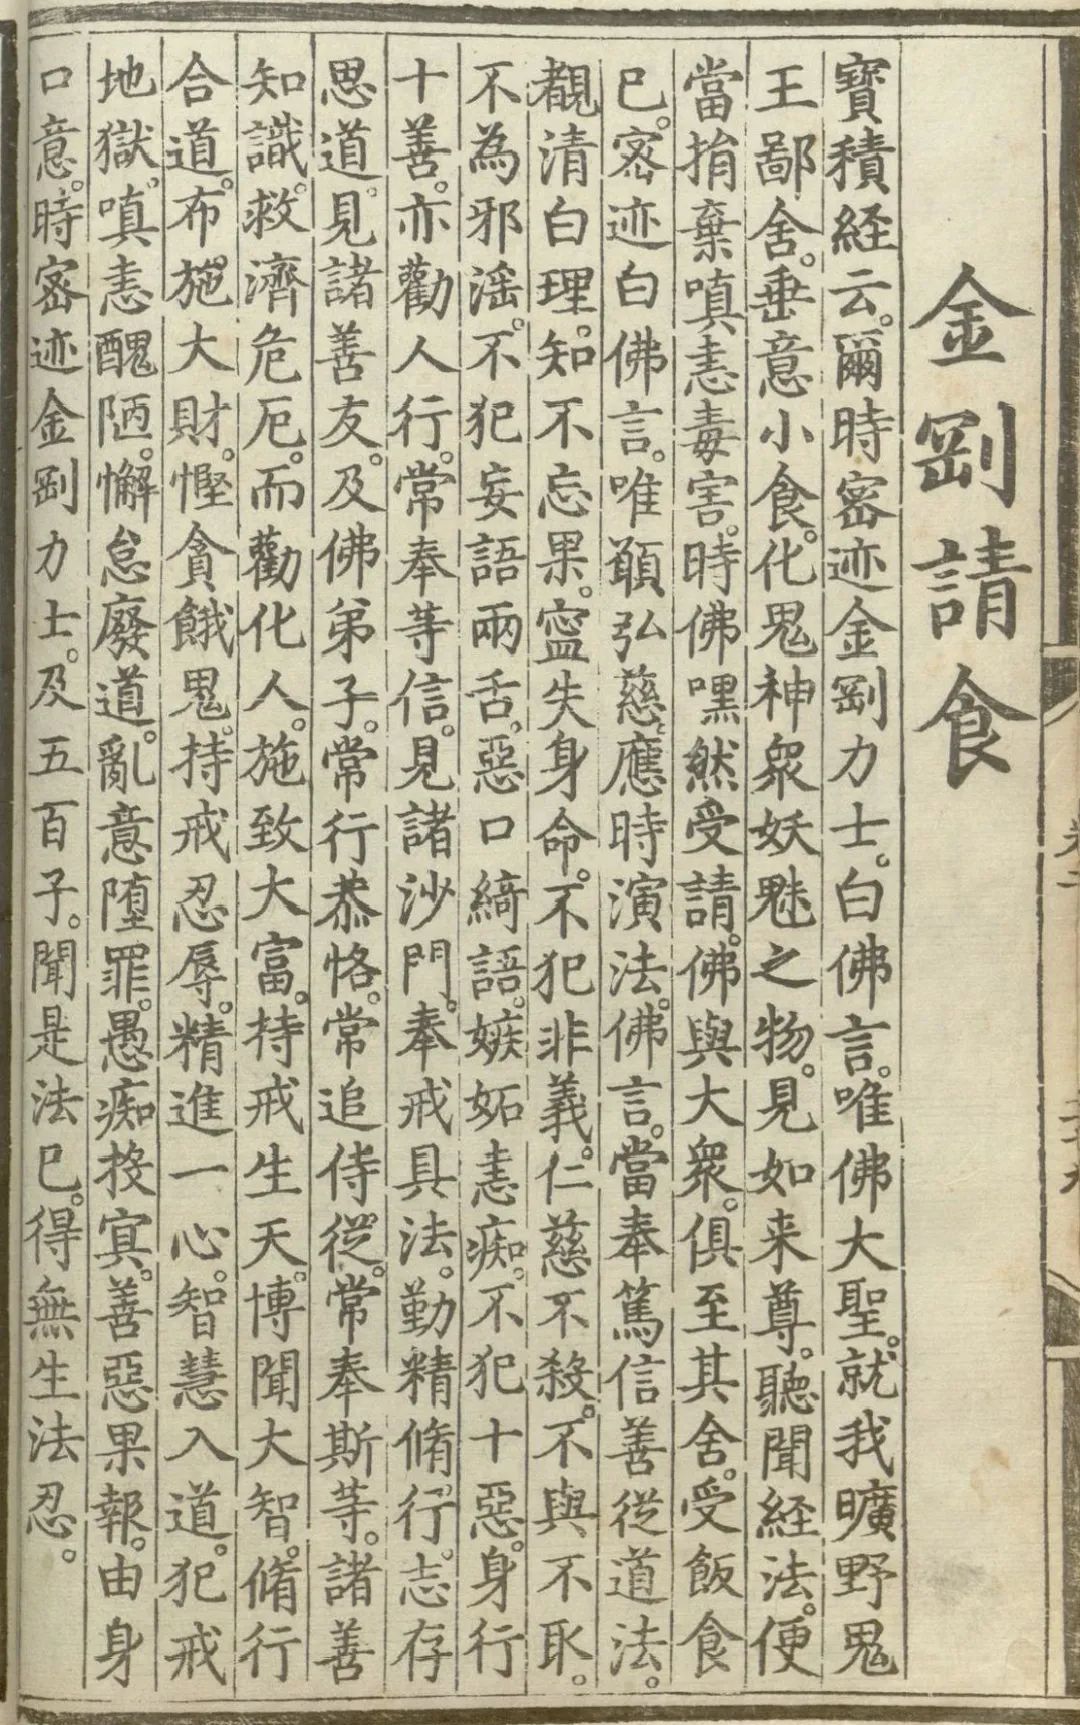 金剛請食
寶積経云。爾時密迹金剛力士。白佛言。唯佛大聖。就我曠野鬼
王鄙舍。垂意小食。化鬼神衆妖魅之物。見如来尊。聽聞経法。便
當捐棄嗔恚毒害。時佛嘿然受請。佛與大衆。俱至其舍。受飯食
已。密迹白佛言。唯願弘慈。應時演法。佛言。當奉篤信善從道法。
覩清白理。知不忘果。寧失身命。不犯非義。仁慈不殺。不與不取。
不為邪滛。不犯妄語兩舌。惡口綺語。嫉妬恚痴。不犯十惡。身行
十善。亦勸人行。常奉等信。見諸沙門。奉戒具法。勤精脩行。志存
思道。見諸善友。及佛弟子。常行恭恪。常追侍從。常奉斯等。諸善
知識。救濟危厄。而勸化人。施致大富。持戒生天。博聞大智。脩行
合道。布施大財。慳貪餓鬼。持戒忍辱。精進一心。智慧入道。犯戒
地獄。嗔恚醜陋。懈怠廢道。亂意墮罪。愚痴投冥。善惡果報。由身
口意。時密迹金剛力士。及五百子。聞是法已。得無生法忍。